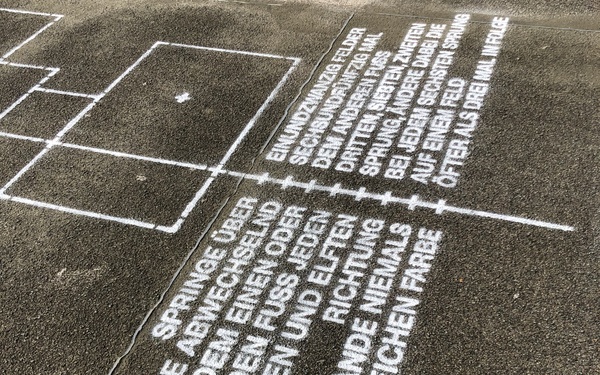 SPRINGE ÜBER EINUNDZWANZIG FELDER
ABWECHSELND SECHSUNDFÜNFZIG MAL
DEM EINEN ODER DEM ANDEREN FUSS
FUSS JEDEN DRITTEN, SIEBTEN, ZWEITEN
UND ELFTEN SPRUNG, ÄNDERE DABEI DIE
RICHTUNG BEI JEDEM SECHSTEN SPRUNG
NIEMALS AUF EINEM FELD
FARBE ÖFTER ALS DREI MAL IN FOLGE